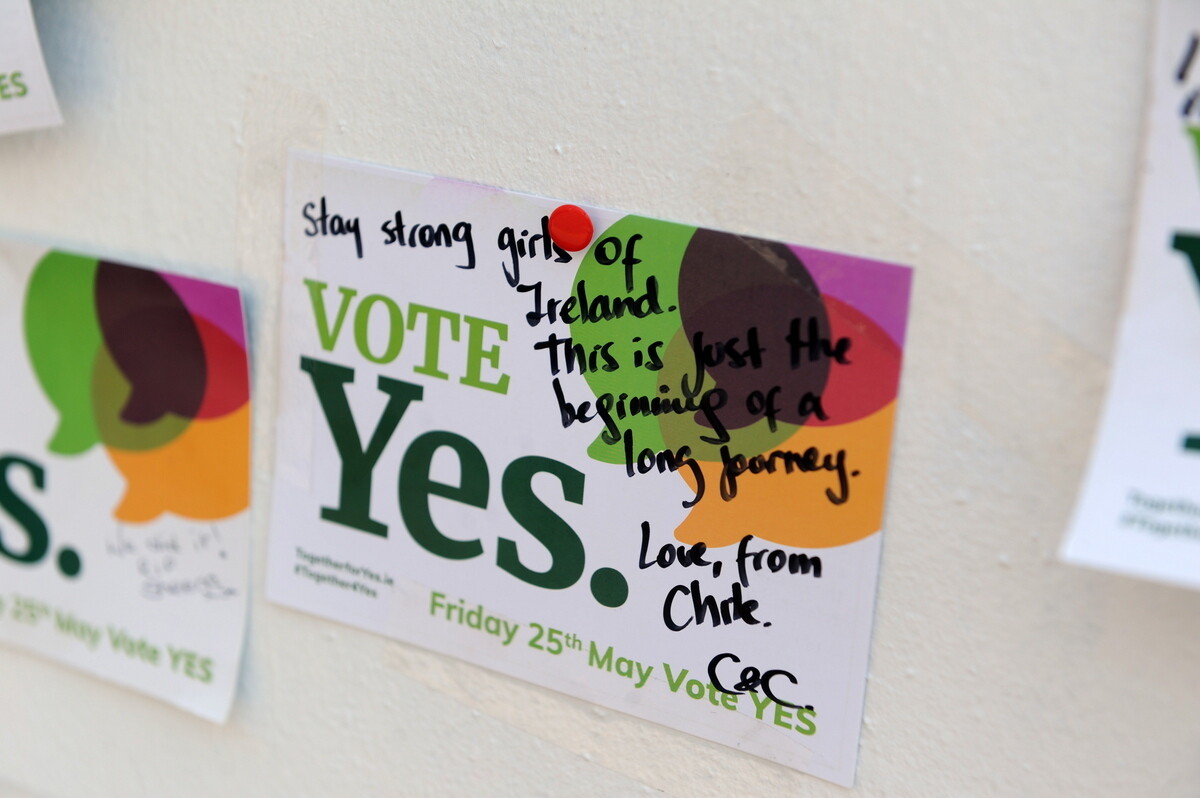 ES
Stay strong girls of
Ireland.
This is just the
beginning of a
long journey.
Love, from
Chile.
C&C.
VOTE
Yes.
TogetherforYes.ie
#Together4Yes
Friday 25th May Vote YES
s.
We did it!
25th May Vote YES